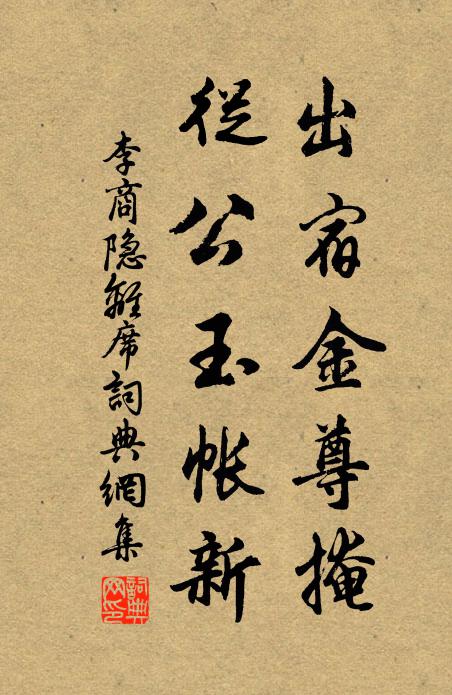 出宿金尊掩
從公玉帐新
李商隐離席詞典網集
詞典網印